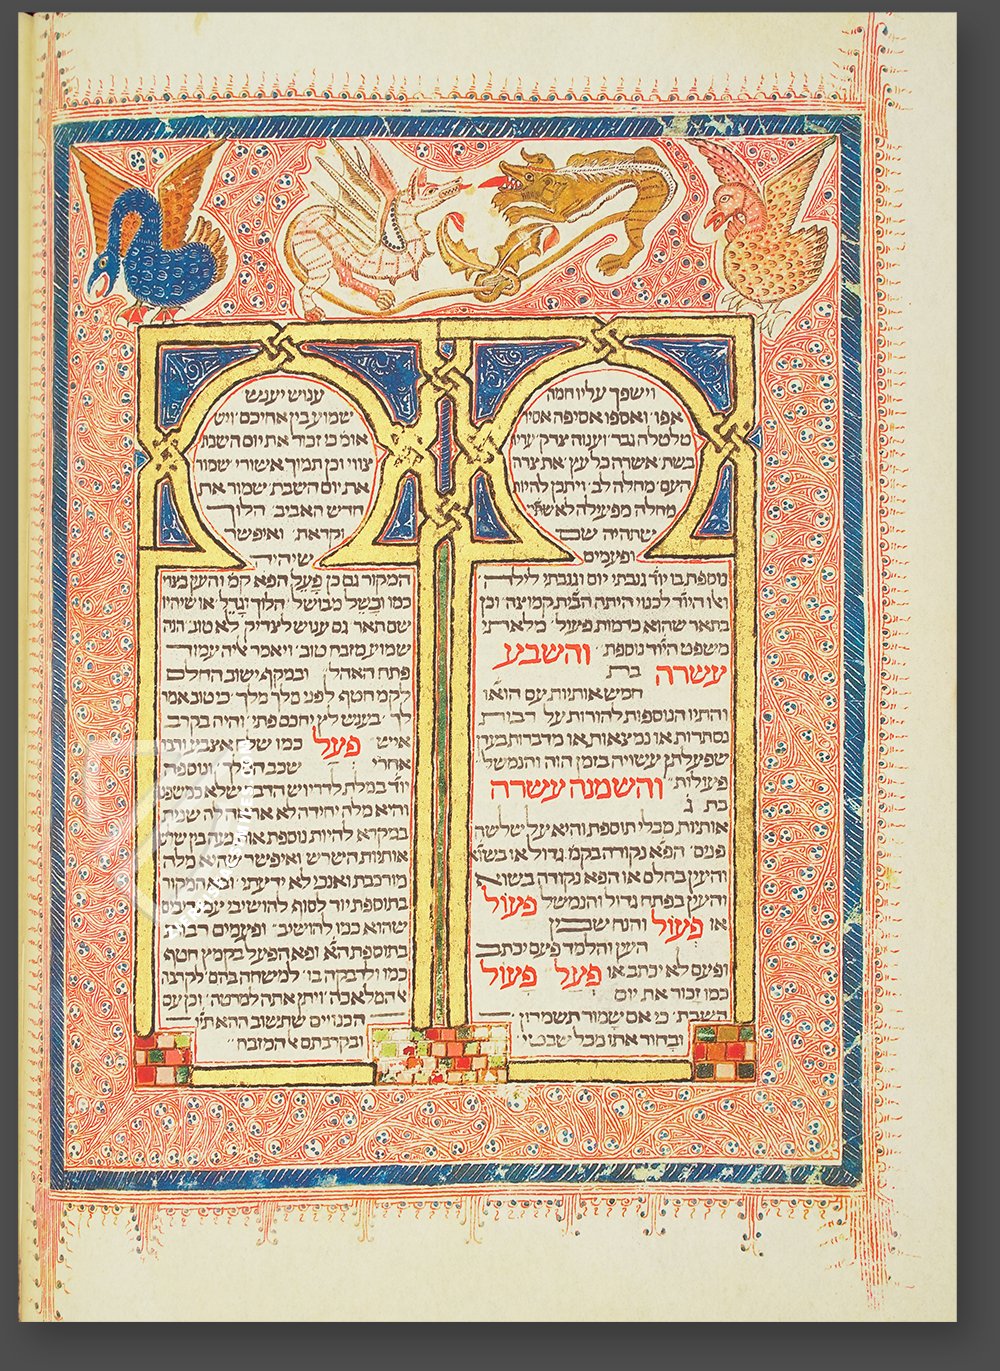 וישפך עליו חמה
אפו ואספו אסיפה אסיר
טלטלה גבר וענוה צדק
בשת אשרה כל עץ את צרה
העם מחלה לב ויתכן להיות
מחלה מפעילה לא
שתהיה שם
ופעמים
נוספת בו יוד גנבתי יום וגנבתי לילה
ואו היוד לכנוי היתה הבית קמוצה וכן
בתאר שהוא כדמות פעול מלאתי
משפט היוד נוספת והשבע
עשרה בת
חמש אותיות עם הואו
והתיו הנוספות להורות על רבות
נסתרות או נמצאות או מדברות בעין
שפעלתן עשויה בזמן הזה והנמשל
פעולות והשמנה עשרה
בת ג
אותיות מבלי תוספת והיא על שלשה
פנים הפא נקודה בקמץ גדול או בשוא
והעין בחלם או הפא נקודה בשוא
והעין בפתח גדול והנמשל פָעוֹל
או פְעוֹל והנח שבין
העין והלמד פעם יכתב
ופעם לא יכתב או פְעַל פָעוֹל
כמו זכור את יום
השבת כי אם שָמור תשמרון
ובחור אתו מכל שבטי
ענוש יענש
שמוע בין אחיכם ויש
אומ׳ כן זכור את יום השבת
צווי וכן תמיך אשורי שמור
את יום השבת שמור את
חדש האביב הלוך
וקראת ואיפשר
שיהיה
המקור גם כן פָעֵל הפא קמ׳ והעין בצרי
כמו ובָשֵל מבושל הלוך וגָדֵל או שיהיו
שם תאר גם ענוש לצדיק לא טוב הנה
שמוע מזבח טוב ויאמר אליה עמוד
פתח האהל ובמקף ישוב החלם
לקמ׳ חטף לפני מלך מלך כי טוב אמר
לך בענש לץ יחכם פתי והיה בקרב
איש פְעַל כמו שלח אצבע ודבר
אחרי שכב המלך ונוספת
יוד במלת לדריוש הדבר שלא כמשפט
והיא מלה יחידה לא אראה לה שנית
במקרא להיות נוספת אות בה בין שלש
אותיות השרש ואיפשר שהיא מלה
מורכבת ואנכי לא ידעתי ובא המקור
בתוספת יוד לסוף להושיבי עם נדיבים
שהוא כמו להושיב ופעמים רבות
בתוספת הא ופא הפעל בקמץ חטף
כמו ולדבקה בו למשחה בהם לקרבה
אל המלאכה ויתץ אתה למרטה וכן עם
הכנויים שתשוב ההא תיו
ובקרבתם אל המזבח